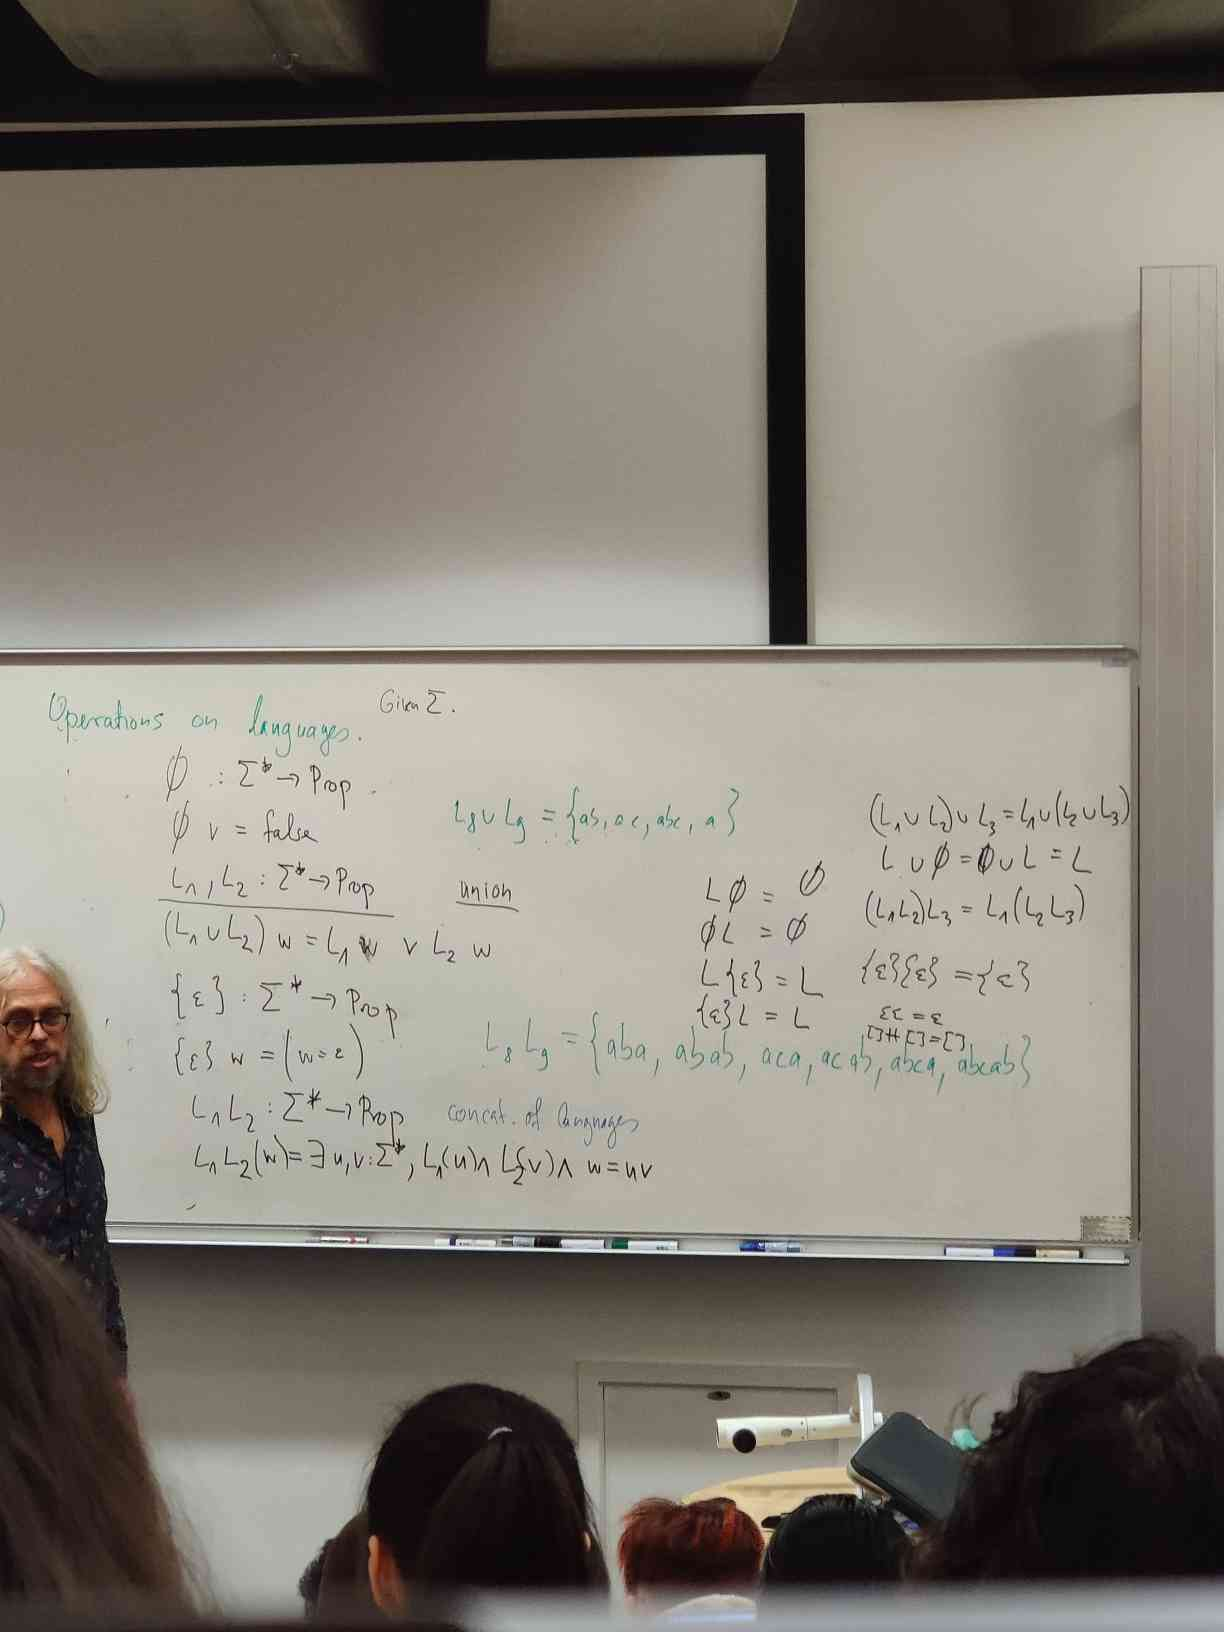 Operations on languages. Given Σ.
∅ : Σ* → Prop
∅ v = false
L₁, L₂ : Σ* → Prop
union
(L₁ ∪ L₂) w = L₁ w ∨ L₂ w
{ε} : Σ* → Prop
{ε} w = (w = ε)
L₁ L₂ : Σ* → Prop concat. of languages
L₁ L₂ (w) = ∃ u, v : Σ*, L₁(u) ∧ L₂(v) ∧ w = uv
L₈ ∪ L₉ = {ab, ac, abc, a}
L∅ = ∅
∅L = ∅
L{ε} = L
{ε}L = L
L₈ L₉ = {aba, abab, aca, acab, abca, abcab}
(L₁ ∪ L₂) ∪ L₃ = L₁ ∪ (L₂ ∪ L₃)
L ∪ ∅ = ∅ ∪ L = L
(L₁L₂)L₃ = L₁(L₂L₃)
{ε}{ε} = {ε}
εε = ε
[] ++ [] = []